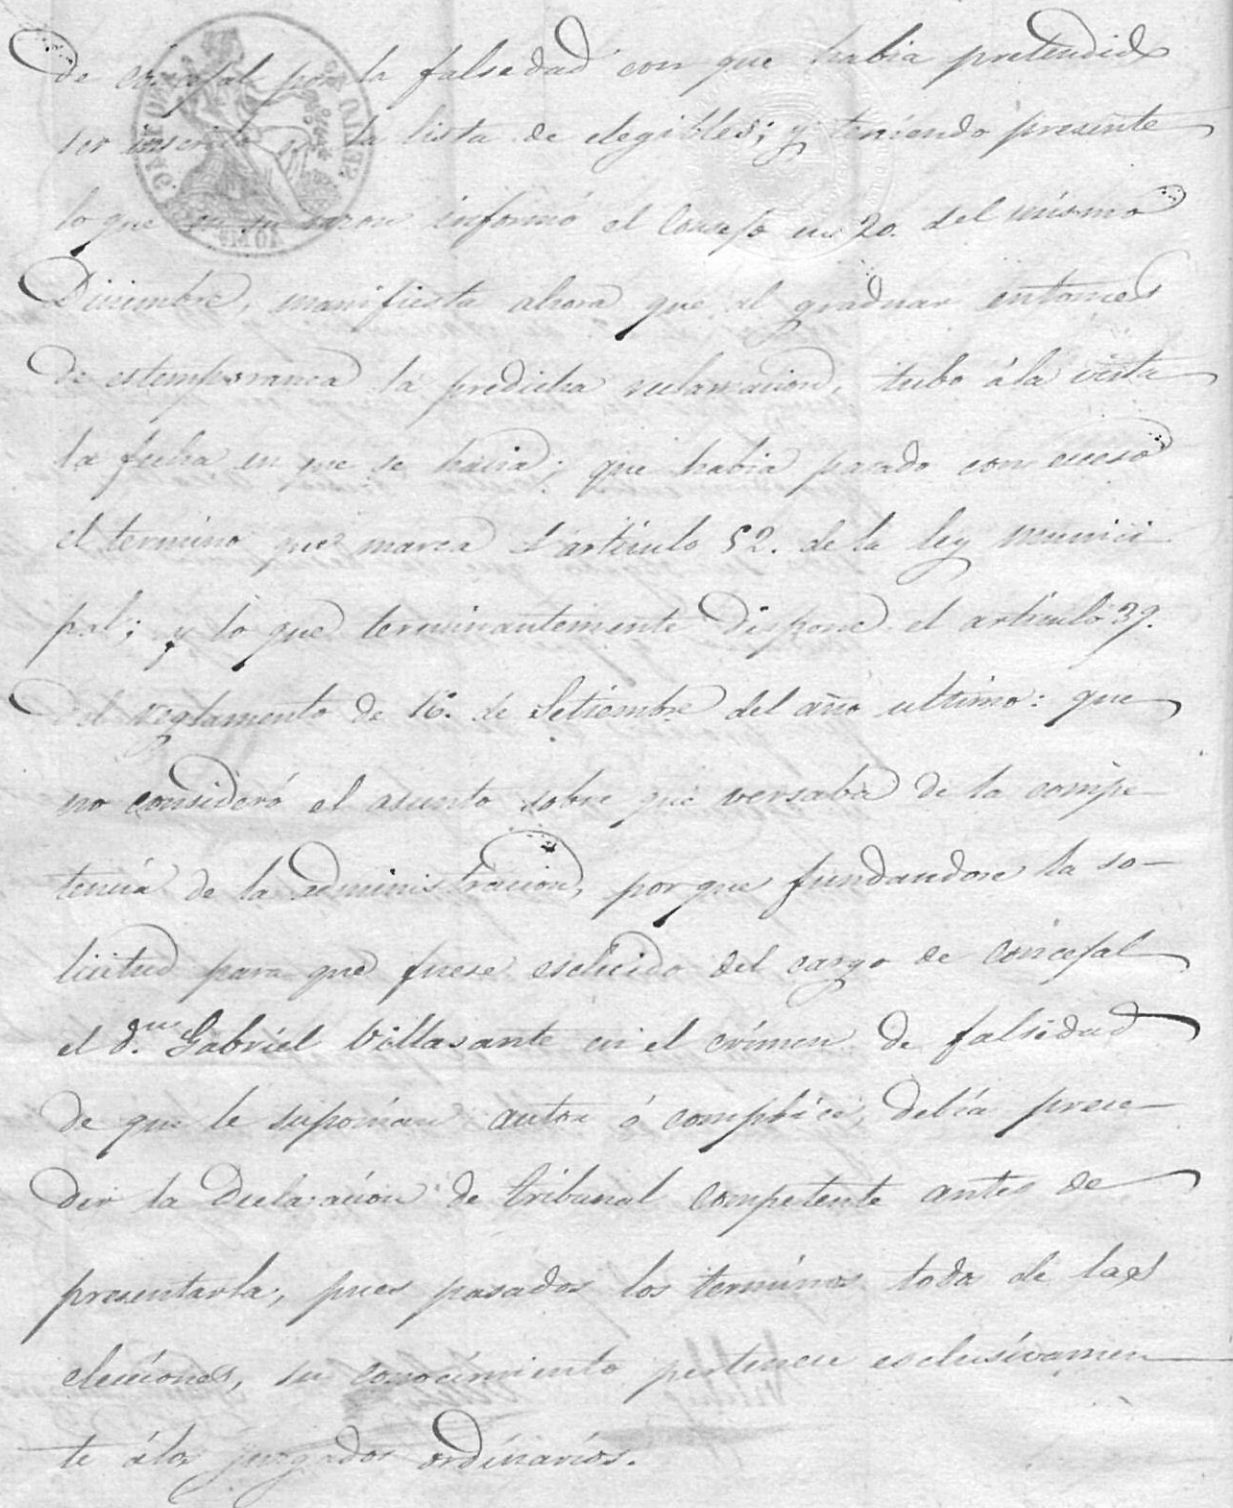 de concejal por la falsedad con que habia pretendido
ser inscrito en la lista de elegibles; y teniendo presente
lo que en su razon informó el Consejo en 20. del mismo
Diciembre, manifiesta ahora que al graduar entonces
de estemporanea la predicha reclamacion, tubo á la vista
la fecha en que se hacia; que habia pasado con exceso
el termino que marca el articulo 52. de la ley munici
pal; y lo que terminantemente dispone el articulo 39.
del reglamento de 16. de Setiembre del año ultimo: que
no consideró el asunto sobre que versaba de la compe-
tencia de la administracion, por que fundandose la so-
licitud para que fuese escluido del cargo de concejal
el d.ⁿ Gabriel Villasante en el crimen de falsedad
de que le suponian autor ó complice, debia prece-
der la declaracion de tribunal competente antes de
presentarla; pues pasados los terminos todos de las
elecciones, su conocimiento pertenece esclusivamen
te á los juzgados ordinarios.